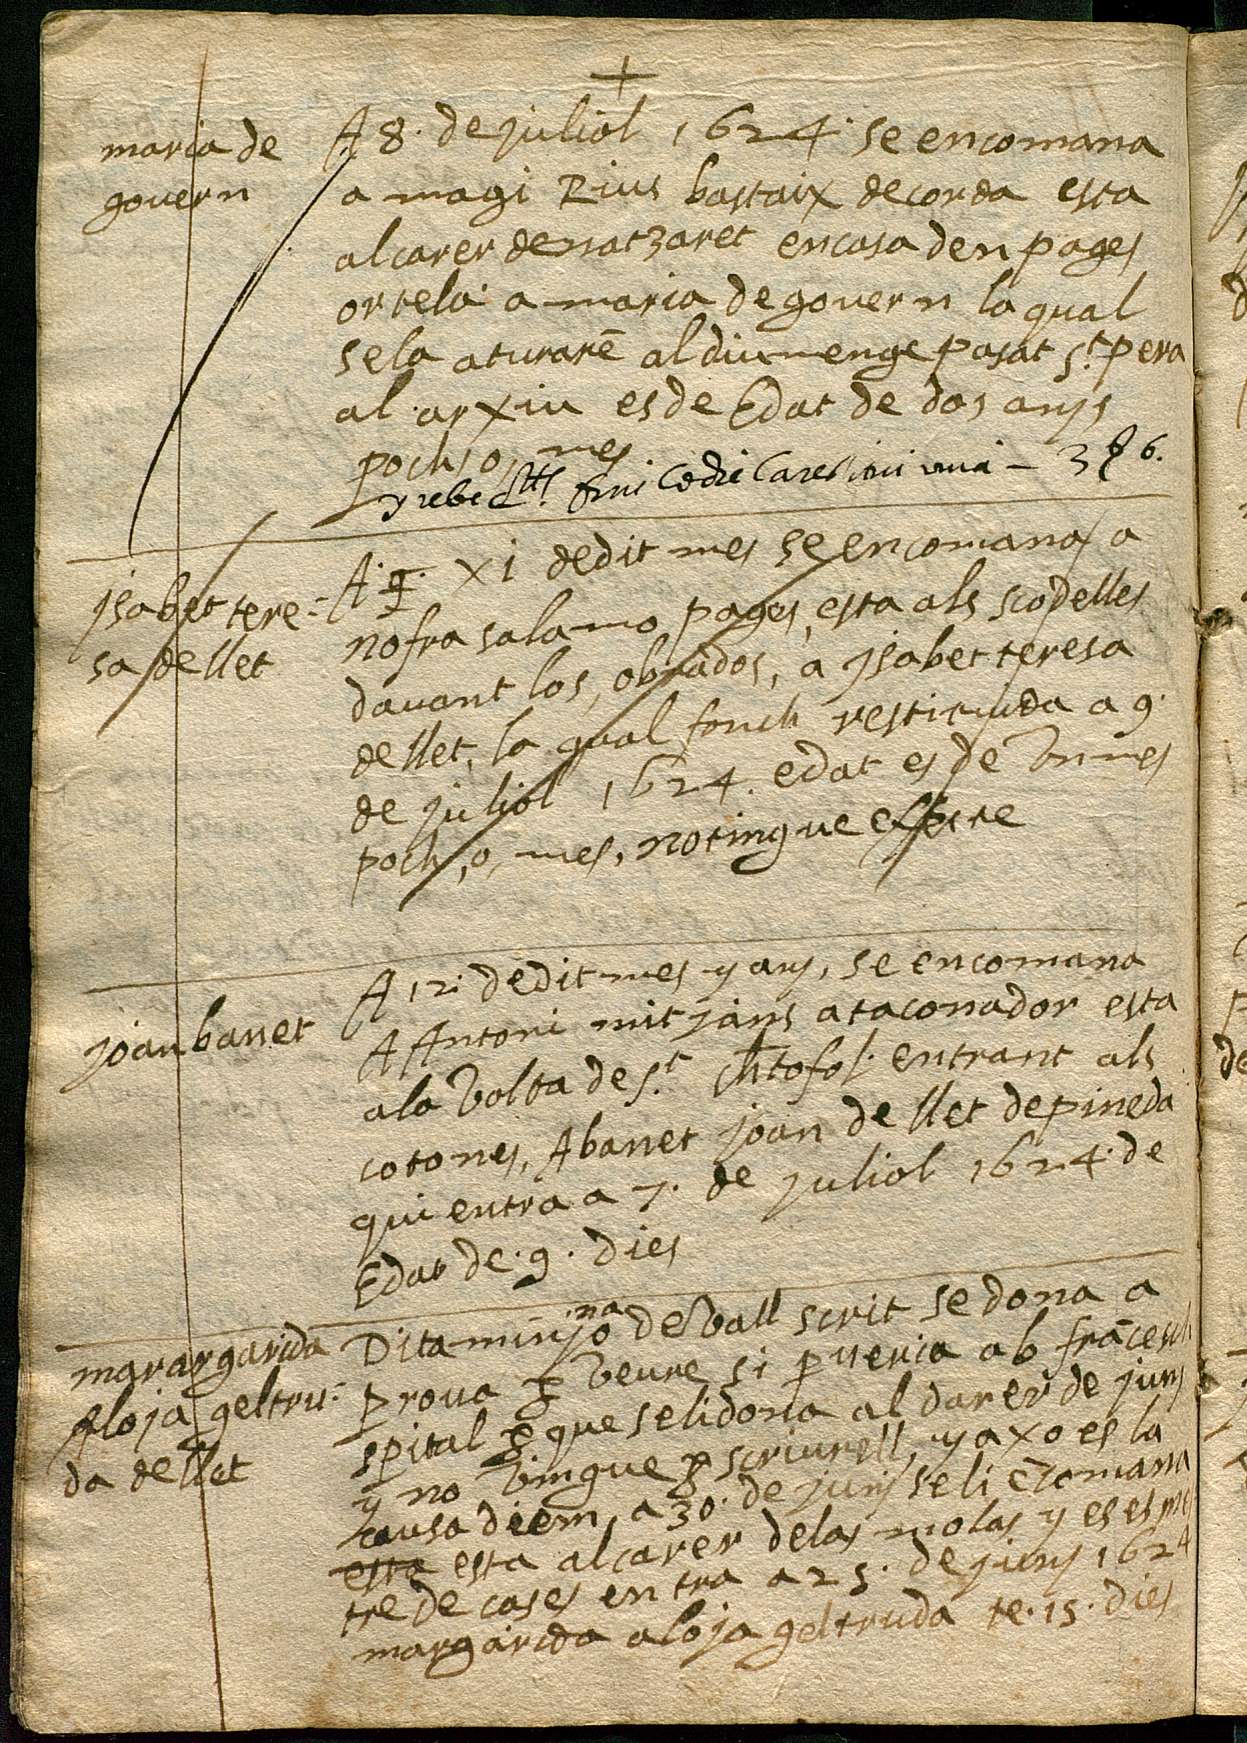 +
maria de
govern
A 8. de juliol 1624. se encomana
a magi Rius bastaix de corda esta
al carer de natzaret en casa den pages
ortela a maria de govern la qual
se la aturarē al diumenge pasat st. pera
al arxiu es de Edat de dos anys
poch, o, mes
y rebe
jsabet tere=
sa de llet
A. xi de dit mes se encomana a
nofra salamo pages, esta als scodelles
davant los, obrados, a jsabet teresa
de llet, la qual fonch restituida a 9.
de juliol 1624. edat es de vn mes
poch, o, mes, no tingue effecte
joan banet
A 12. de dit mes y any, se encomana
A Antoni mitjans ataconador esta
a la volta de st. christofol. entrant als
cotoners, A banet joan de llet de pineda
qui entra a 7. de juliol 1624. de
Edat de. 9. dies
marargarida
Aloja geltru=
da de llet
na
Dita minjo de vall scrit se dona a
prova p veure si pveria ab frācesch
spital p que se li dona al darer de juny
y no vingue p scriurell, y axo es la
causa diem, a 30. de juny se li ēcomana
esta esta al carer de las molas y es es mes
tre de cases entra a 25. de juny 1624
margarida aloja geltruda te. 15. dies